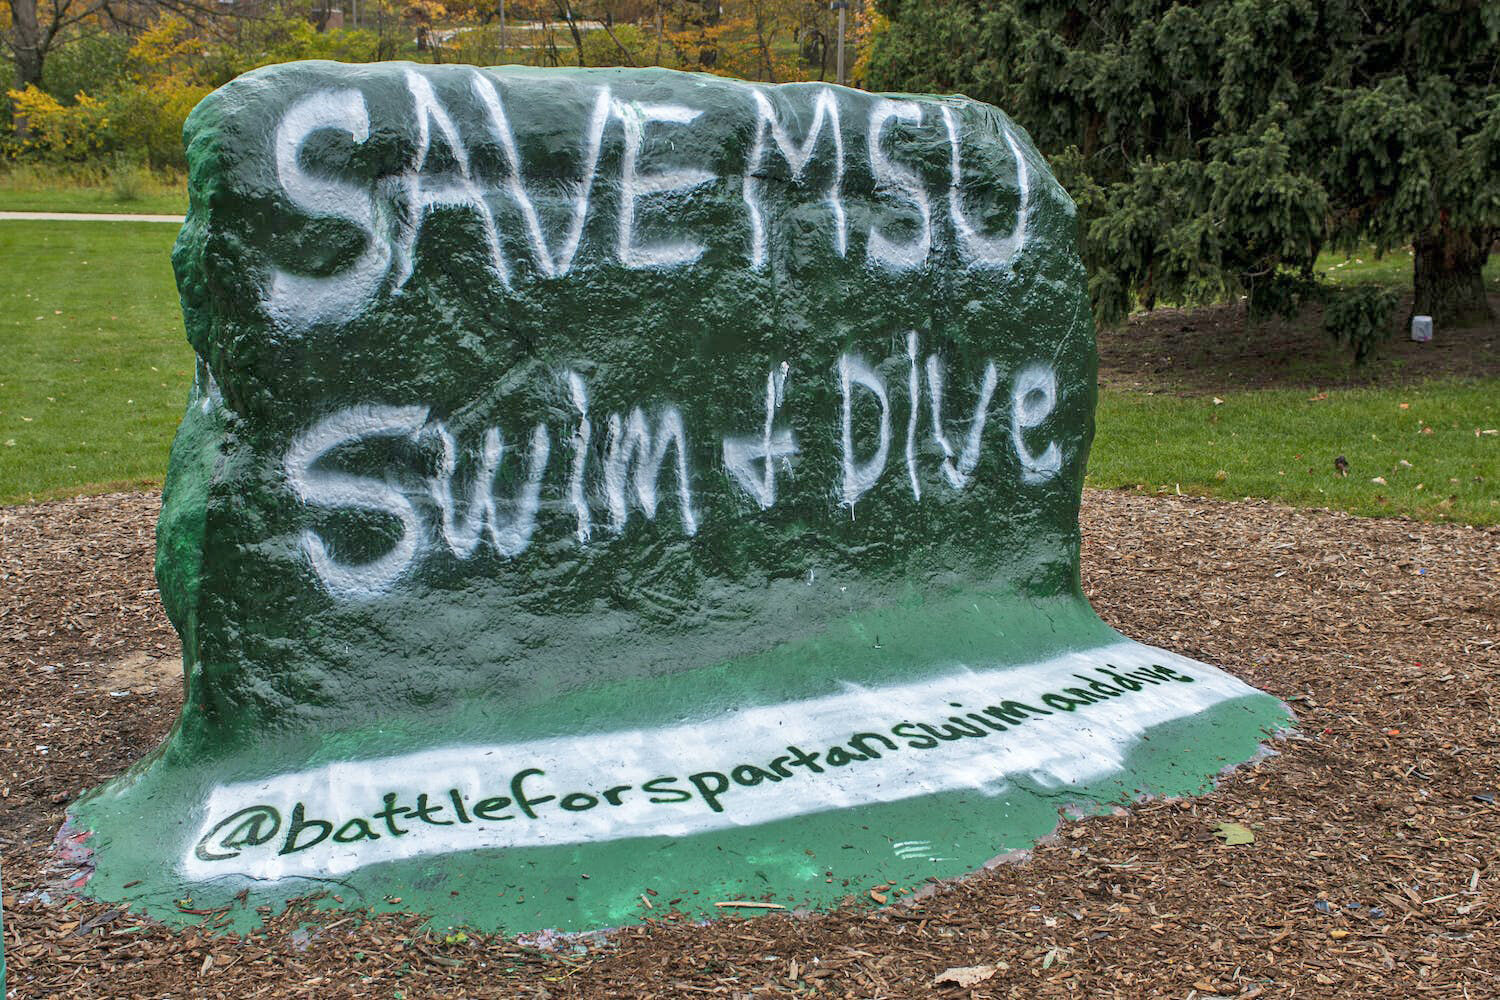 SAVE MSU
Swim & Dive
@battleforspartanswimanddive